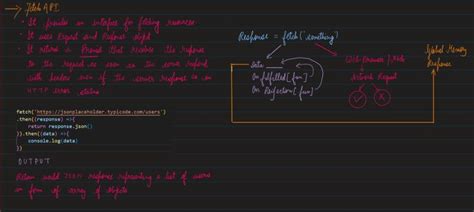 → Fetch API
• It provides an interface for fetching resources
• It uses Request and Response object
• It returns a Promise that resolves the response
to the request as soon as the server respond
with headers even if the server response is an
HTTP error status
fetch('https://jsonplaceholder.typicode.com/users')
.then((response) =>{
return response.json()
}).then((data) =>{
console.log(data)
})
OUTPUT
Return valid JSON response representing a list of users
in form of array of objects
Response = fetch('something')
Data
On fulfilled [fun]
On Rejection [fun]
Web Browser / Node
Network Request
Global Memory
Response